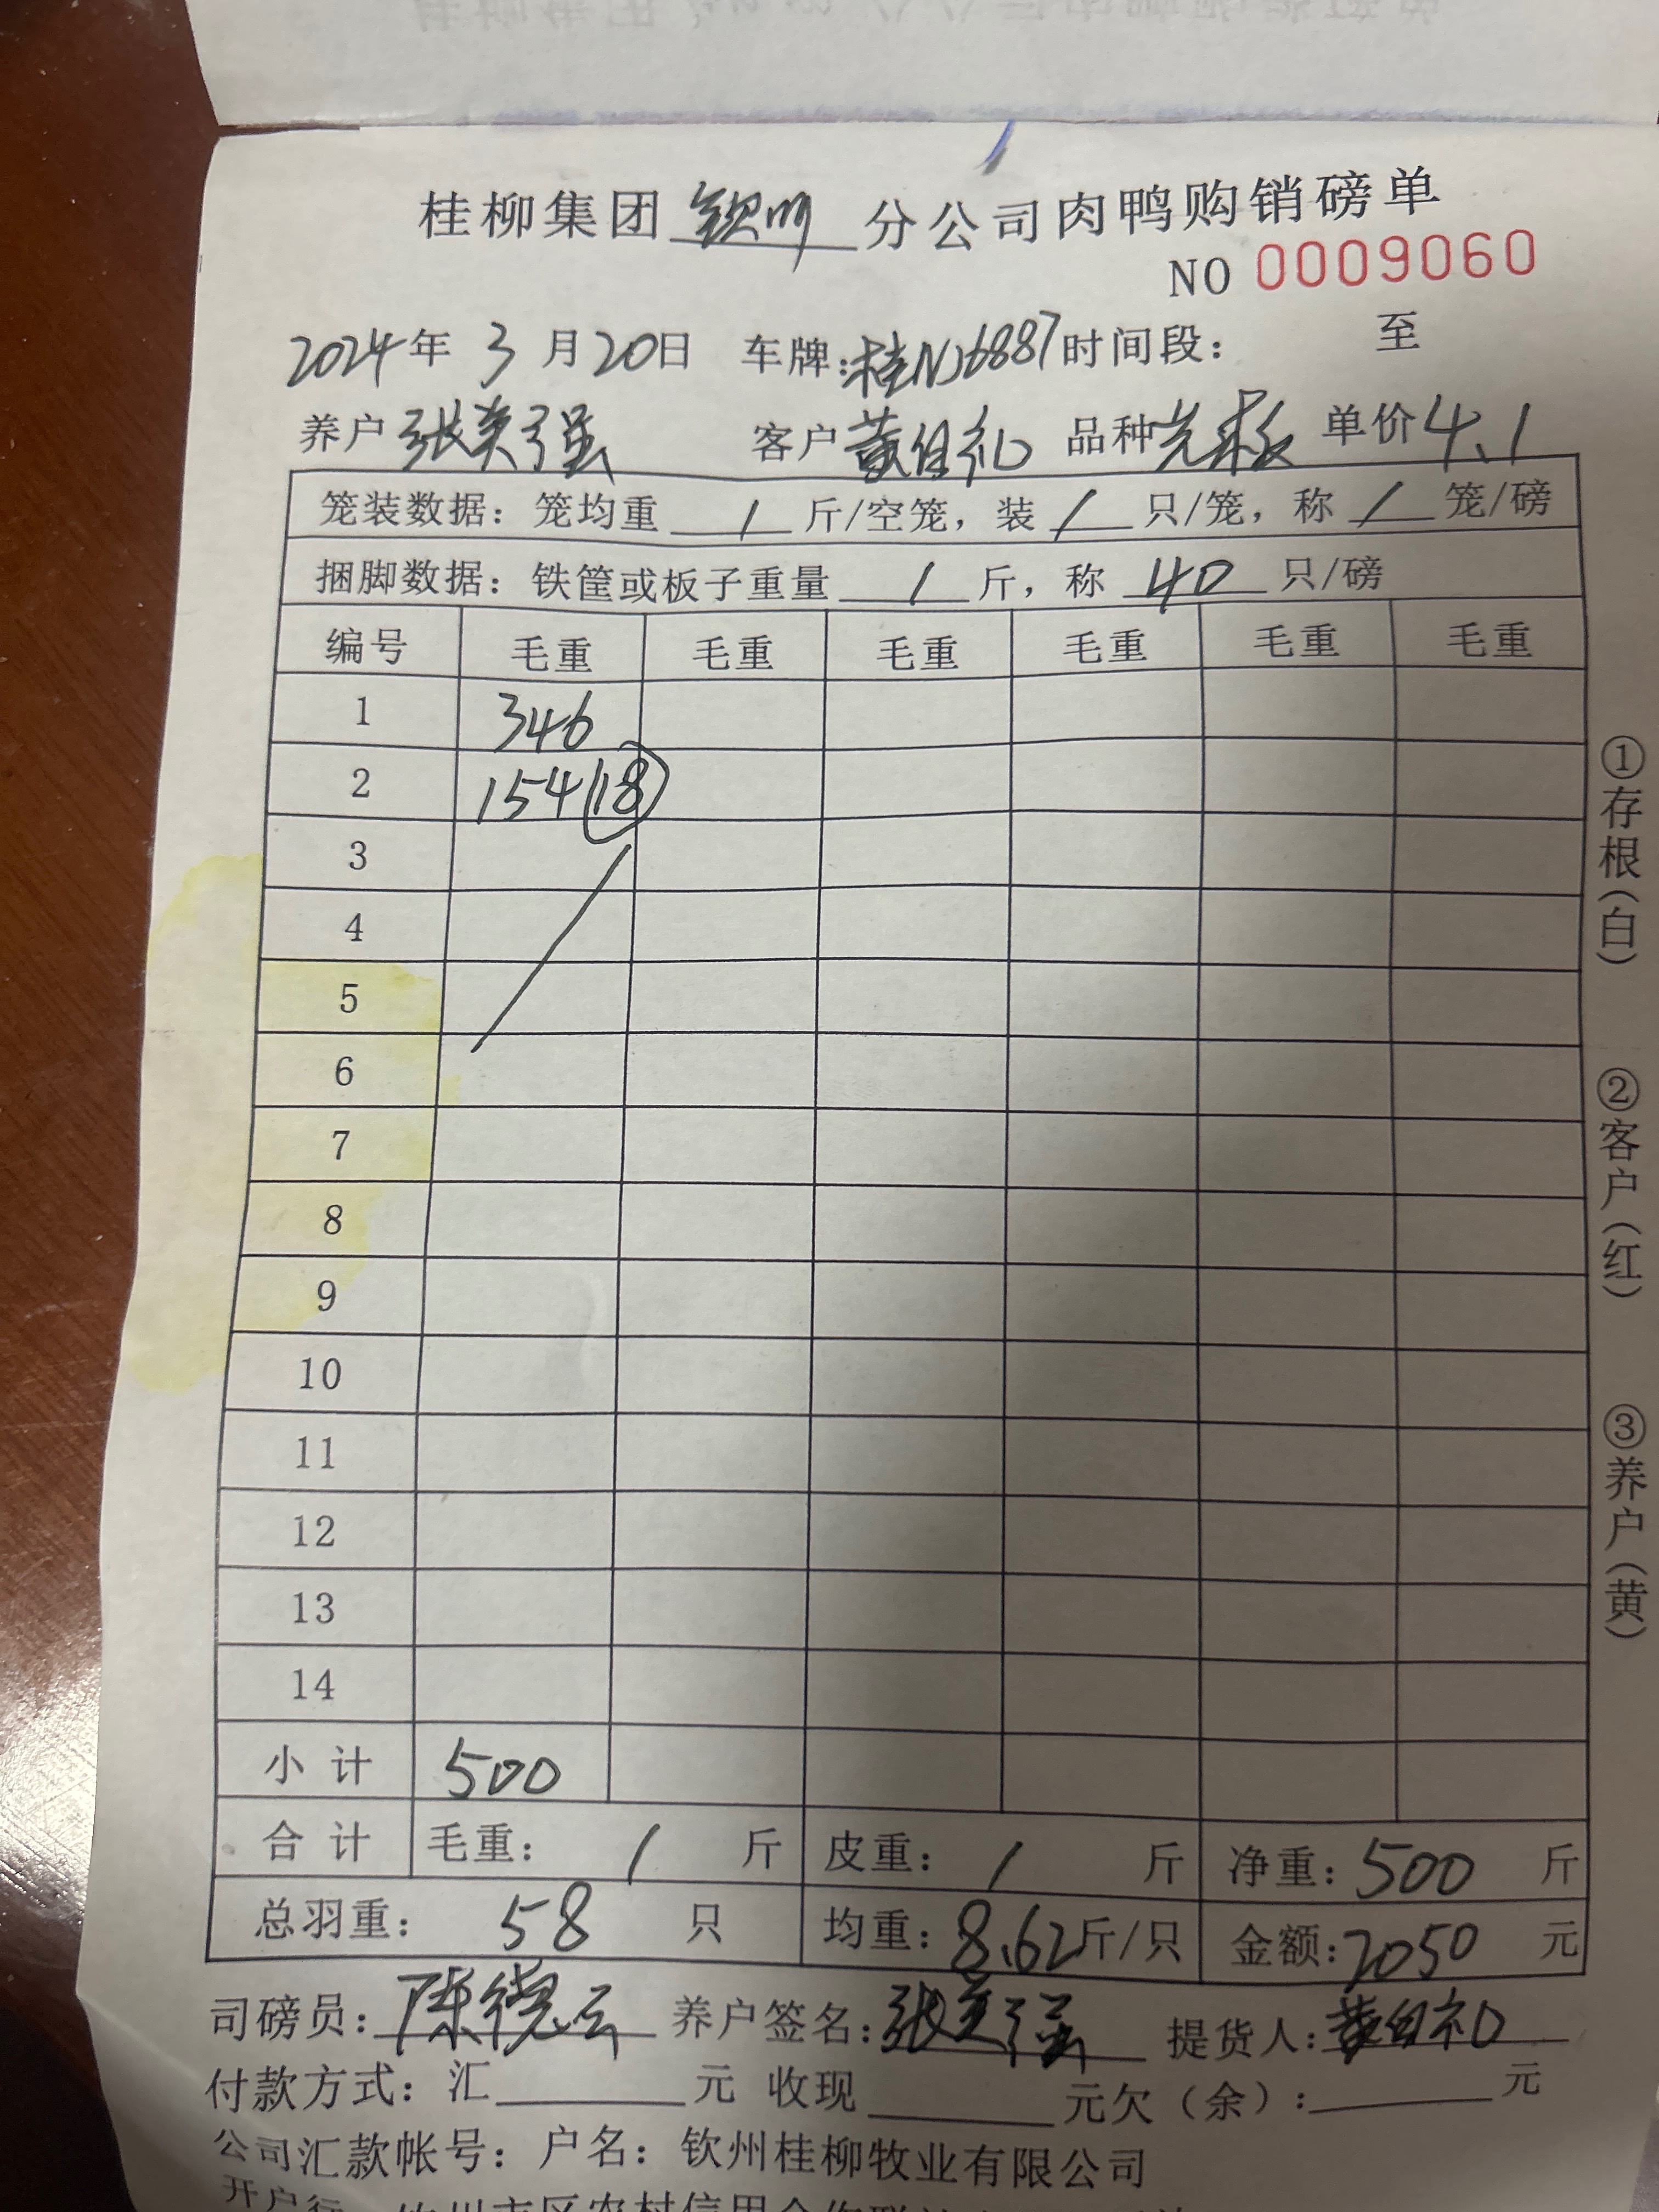 桂柳集团 钦州 分公司肉鸭购销磅单
NO 0009060
2024年 3 月20日 车牌:桂NJ6887时间段: 至
养户 张英强 客户 黄自礼 品种 单价4.1
笼装数据: 笼均重 / 斤/空笼, 装 / 只/笼, 称 / 笼/磅
捆脚数据: 铁筐或板子重量 / 斤, 称 40 只/磅
编号 毛重 毛重 毛重 毛重 毛重 毛重
1 346
2 154(18)
3
4
5
6
7
8
9
10
11
12
13
14
小计 500
合计 毛重: / 斤 皮重: / 斤 净重:500 斤
总羽重: 58 只 均重:8.62斤/只 金额:2050 元
司磅员:陈德云 养户签名:张英强 提货人:黄自礼
付款方式: 汇 元 收现 元欠(余): 元
公司汇款帐号: 户名: 钦州桂柳牧业有限公司
开户行
①存根(白)
②客户(红)
③养户(黄)